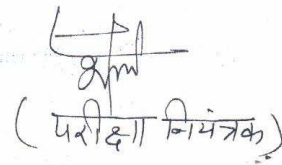 ( परीक्षा नियंत्रक )